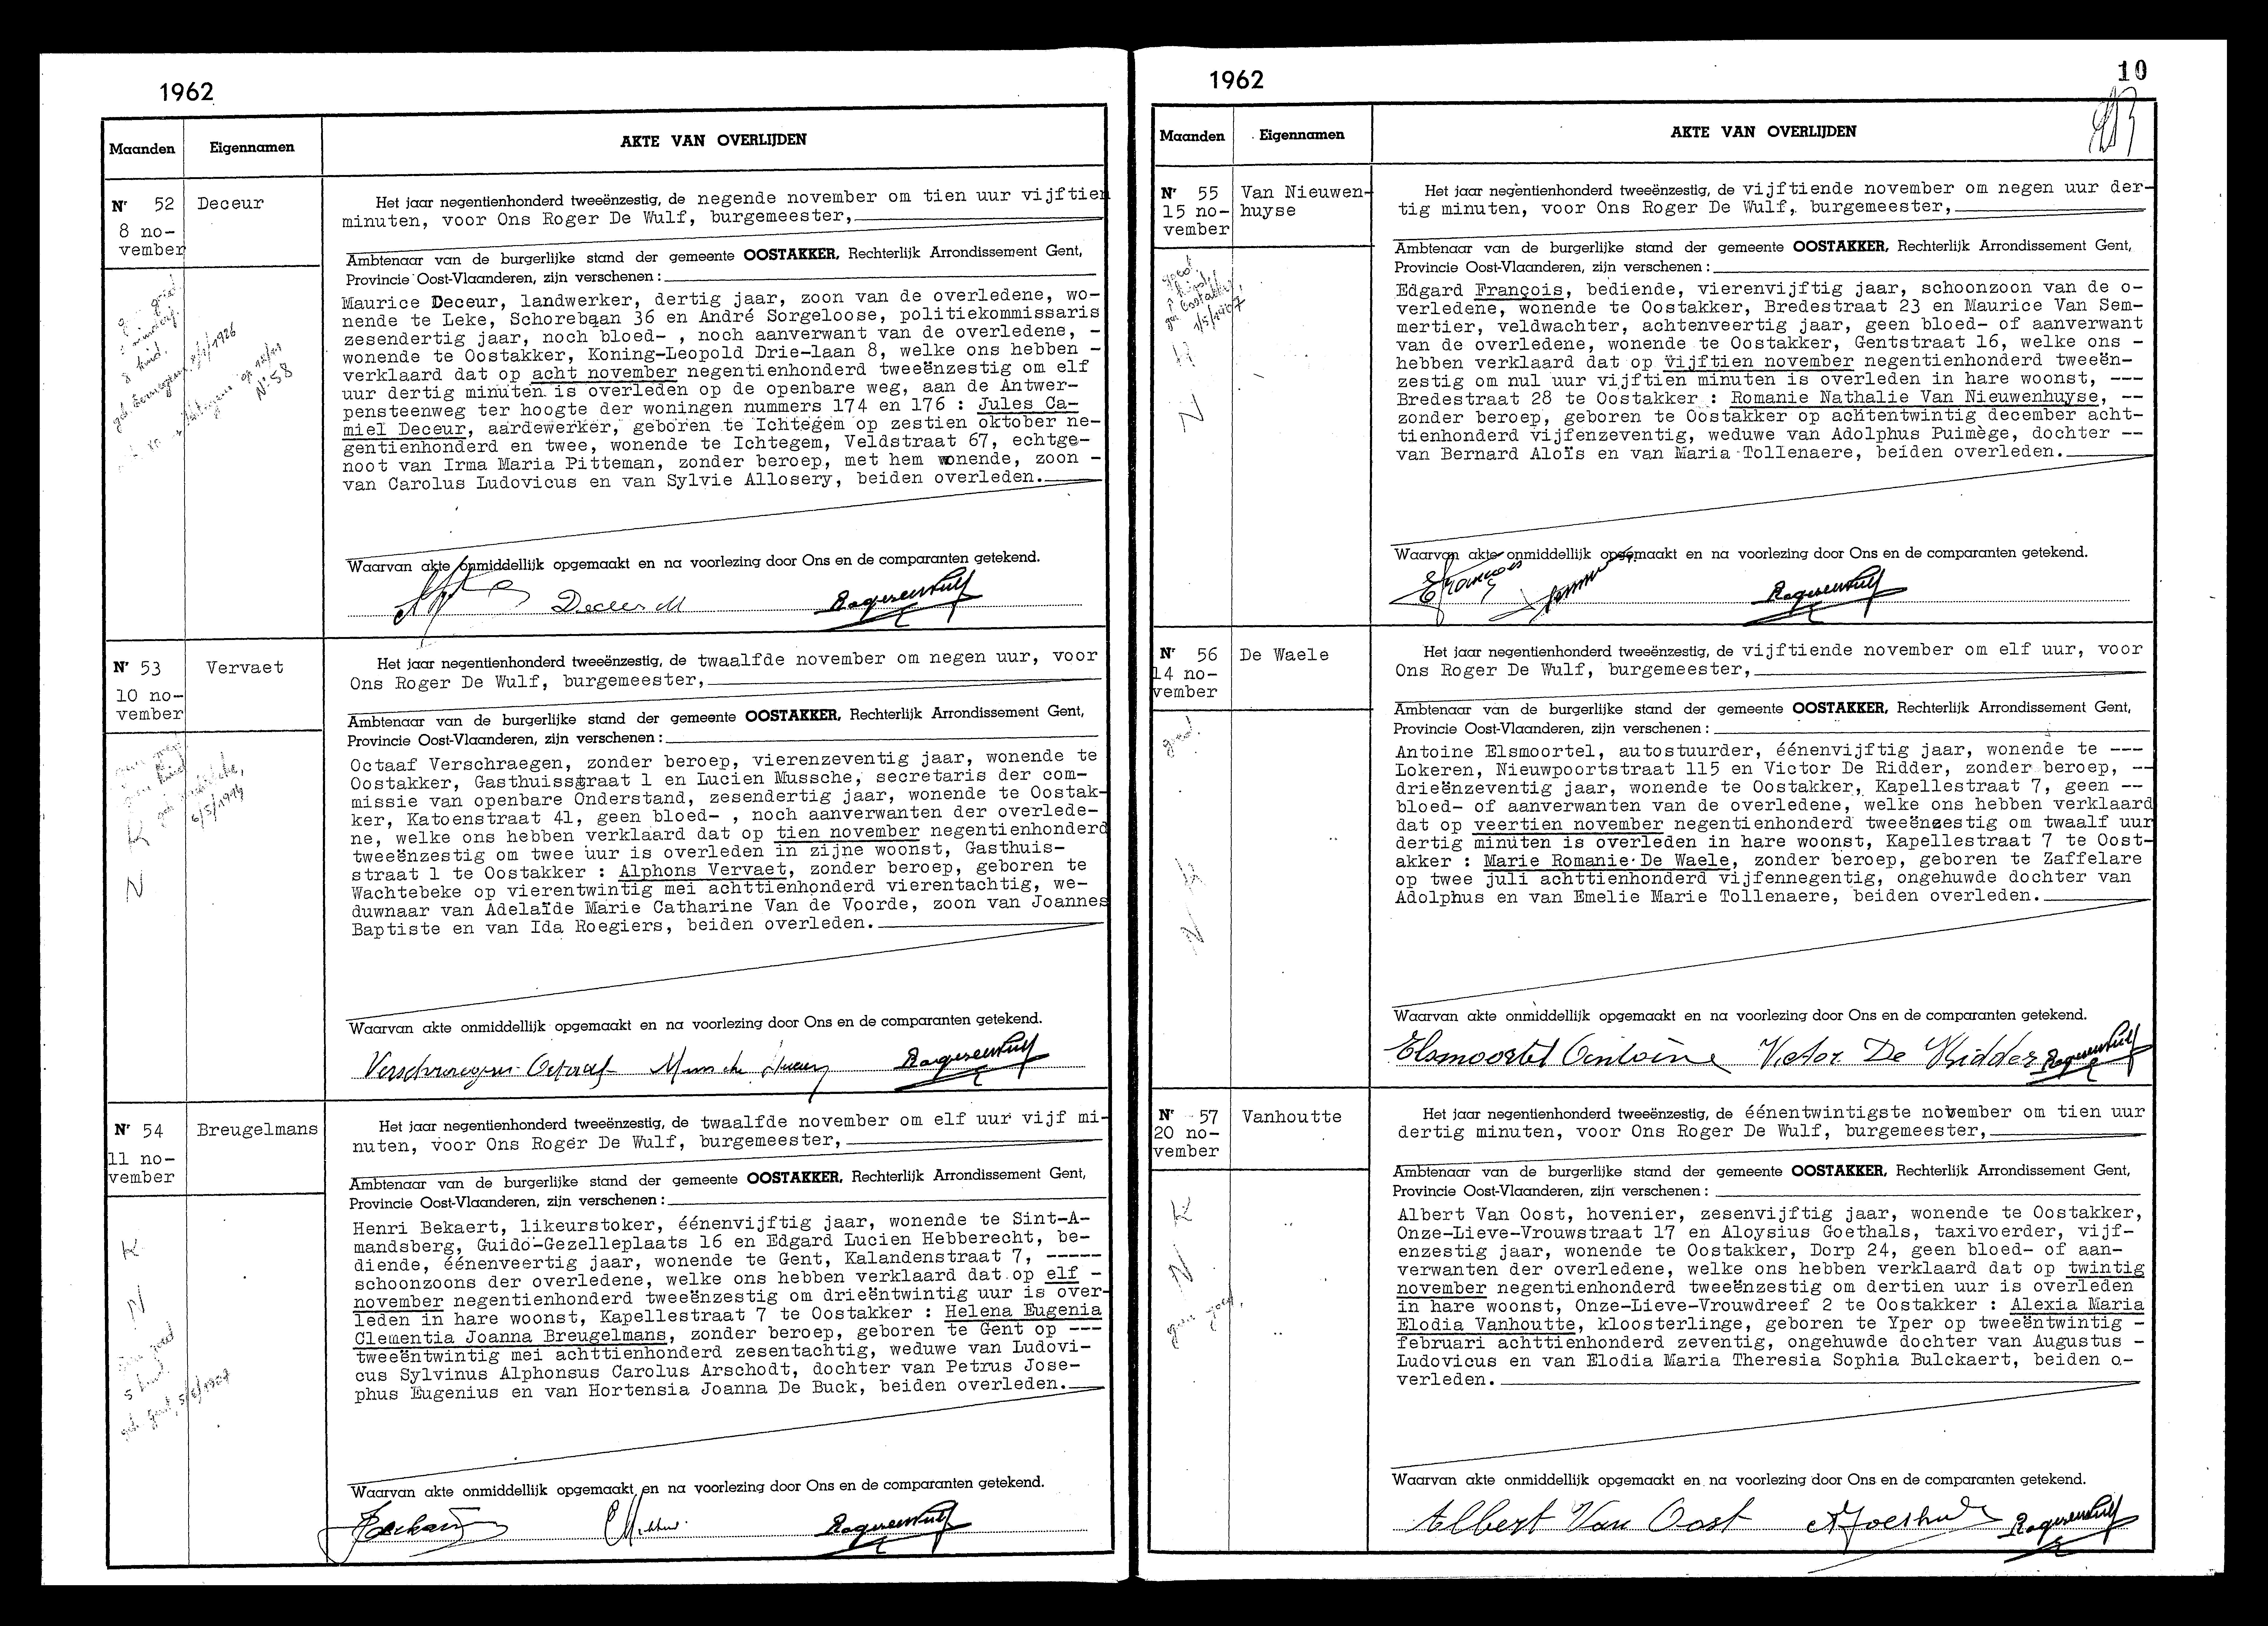 1962
Maanden
Eigennamen
AKTE VAN OVERLIJDEN
Nr 52
8 no-
vember
Deceur
Het jaar negentienhonderd tweeënzestig, de negende november om tien uur vijftien
minuten, voor Ons Roger De Wulf, burgemeester,
Ambtenaar van de burgerlijke stand der gemeente OOSTAKKER, Rechterlijk Arrondissement Gent,
Provincie Oost-Vlaanderen, zijn verschenen :
Maurice Deceur, landwerker, dertig jaar, zoon van de overledene, wo-
nende te Leke, Schorebaan 36 en André Sorgeloose, politiekommissaris
zesendertig jaar, noch bloed- , noch aanverwant van de overledene, -
wonende te Oostakker, Koning-Leopold Drie-laan 8, welke ons hebben -
verklaard dat op acht november negentienhonderd tweeënzestig om elf
uur dertig minuten is overleden op de openbare weg, aan de Antwer-
pensteenweg ter hoogte der woningen nummers 174 en 176 : Jules Ca-
miel Deceur, aardewerker, geboren te Ichtegem op zestien oktober ne-
gentienhonderd en twee, wonende te Ichtegem, Veldstraat 67, echtge-
noot van Irma Maria Pitteman, zonder beroep, met hem wonende, zoon -
van Carolus Ludovicus en van Sylvie Allosery, beiden overleden.
Waarvan akte onmiddellijk opgemaakt en na voorlezing door Ons en de comparanten getekend.
Deceur M
N° 58
Nr 53
10 no-
vember
Vervaet
Het jaar negentienhonderd tweeënzestig, de twaalfde november om negen uur, voor
Ons Roger De Wulf, burgemeester,
Ambtenaar van de burgerlijke stand der gemeente OOSTAKKER, Rechterlijk Arrondissement Gent,
Provincie Oost-Vlaanderen, zijn verschenen :
Octaaf Verschraegen, zonder beroep, vierenzeventig jaar, wonende te
Oostakker, Gasthuisstraat 1 en Lucien Mussche, secretaris der com-
missie van openbare Onderstand, zesendertig jaar, wonende te Oostak-
ker, Katoenstraat 41, geen bloed- , noch aanverwanten der overlede-
ne, welke ons hebben verklaard dat op tien november negentienhonderd
tweeënzestig om twee uur is overleden in zijne woonst, Gasthuis-
straat 1 te Oostakker : Alphons Vervaet, zonder beroep, geboren te
Wachtebeke op vierentwintig mei achttienhonderd vierentachtig, we-
duwnaar van Adelaïde Marie Catharine Van de Voorde, zoon van Joannes
Baptiste en van Ida Roegiers, beiden overleden.
Waarvan akte onmiddellijk opgemaakt en na voorlezing door Ons en de comparanten getekend.
Verschraegen Octaaf
N
Nr 54
11 no-
vember
Breugelmans
Het jaar negentienhonderd tweeënzestig, de twaalfde november om elf uur vijf mi-
nuten, voor Ons Roger De Wulf, burgemeester,
Ambtenaar van de burgerlijke stand der gemeente OOSTAKKER, Rechterlijk Arrondissement Gent,
Provincie Oost-Vlaanderen, zijn verschenen :
Henri Bekaert, likeurstoker, éénenvijftig jaar, wonende te Sint-A-
mandsberg, Guido-Gezelleplaats 16 en Edgard Lucien Hebberecht, be-
diende, éénenveertig jaar, wonende te Gent, Kalandenstraat 7, -----
schoonzoons der overledene, welke ons hebben verklaard dat op elf -
november negentienhonderd tweeënzestig om drieëntwintig uur is over-
leden in hare woonst, Kapellestraat 7 te Oostakker : Helena Eugenia
Clementia Joanna Breugelmans, zonder beroep, geboren te Gent op ---
tweeëntwintig mei achttienhonderd zesentachtig, weduwe van Ludovi-
cus Sylvinus Alphonsus Carolus Arschodt, dochter van Petrus Jose-
phus Eugenius en van Hortensia Joanna De Buck, beiden overleden.
Waarvan akte onmiddellijk opgemaakt en na voorlezing door Ons en de comparanten getekend.
K
N
1962
10
Maanden
Eigennamen
AKTE VAN OVERLIJDEN
Nr 55
15 no-
vember
Van Nieuwen-
huyse
Het jaar negentienhonderd tweeënzestig, de vijftiende november om negen uur der-
tig minuten, voor Ons Roger De Wulf, burgemeester,
Ambtenaar van de burgerlijke stand der gemeente OOSTAKKER, Rechterlijk Arrondissement Gent,
Provincie Oost-Vlaanderen, zijn verschenen :
Edgard François, bediende, vierenvijftig jaar, schoonzoon van de o-
verledene, wonende te Oostakker, Bredestraat 23 en Maurice Van Sem-
mertier, veldwachter, achtenveertig jaar, geen bloed- of aanverwant
van de overledene, wonende te Oostakker, Gentstraat 16, welke ons -
hebben verklaard dat op vijftien november negentienhonderd tweeën-
zestig om nul uur vijftien minuten is overleden in hare woonst, ---
Bredestraat 28 te Oostakker : Romanie Nathalie Van Nieuwenhuyse, --
zonder beroep, geboren te Oostakker op achtentwintig december acht-
tienhonderd vijfenzeventig, weduwe van Adolphus Puimège, dochter --
van Bernard Aloïs en van Maria Tollenaere, beiden overleden.
Waarvan akte onmiddellijk opgemaakt en na voorlezing door Ons en de comparanten getekend.
N
Nr 56
14 no-
vember
De Waele
Het jaar negentienhonderd tweeënzestig, de vijftiende november om elf uur, voor
Ons Roger De Wulf, burgemeester,
Ambtenaar van de burgerlijke stand der gemeente OOSTAKKER, Rechterlijk Arrondissement Gent,
Provincie Oost-Vlaanderen, zijn verschenen :
Antoine Elsmoortel, autostuurder, éénenvijftig jaar, wonende te ---
Lokeren, Nieuwpoortstraat 115 en Victor De Ridder, zonder beroep, --
drieënzeventig jaar, wonende te Oostakker, Kapellestraat 7, geen --
bloed- of aanverwanten van de overledene, welke ons hebben verklaard
dat op veertien november negentienhonderd tweeënzestig om twaalf uur
dertig minuten is overleden in hare woonst, Kapellestraat 7 te Oost-
akker : Marie Romanie De Waele, zonder beroep, geboren te Zaffelare
op twee juli achttienhonderd vijfennegentig, ongehuwde dochter van
Adolphus en van Emelie Marie Tollenaere, beiden overleden.
Waarvan akte onmiddellijk opgemaakt en na voorlezing door Ons en de comparanten getekend.
Elsmoortel Antoine Victor De Ridder
Nr 57
20 no-
vember
Vanhoutte
Het jaar negentienhonderd tweeënzestig, de éénentwintigste november om tien uur
dertig minuten, voor Ons Roger De Wulf, burgemeester,
Ambtenaar van de burgerlijke stand der gemeente OOSTAKKER, Rechterlijk Arrondissement Gent,
Provincie Oost-Vlaanderen, zijn verschenen :
Albert Van Oost, hovenier, zesenvijftig jaar, wonende te Oostakker,
Onze-Lieve-Vrouwstraat 17 en Aloysius Goethals, taxivoerder, vijf-
enzestig jaar, wonende te Oostakker, Dorp 24, geen bloed- of aan-
verwanten der overledene, welke ons hebben verklaard dat op twintig
november negentienhonderd tweeënzestig om dertien uur is overleden
in hare woonst, Onze-Lieve-Vrouwdreef 2 te Oostakker : Alexia Maria
Elodia Vanhoutte, kloosterlinge, geboren te Yper op tweeëntwintig -
februari achttienhonderd zeventig, ongehuwde dochter van Augustus -
Ludovicus en van Elodia Maria Theresia Sophia Bulckaert, beiden o-
verleden.
Waarvan akte onmiddellijk opgemaakt en na voorlezing door Ons en de comparanten getekend.
Albert Van Oost
K
N